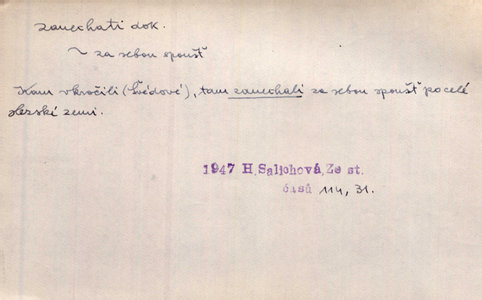 zanechati dok.
~ za sebou spoušť
Kam vkročili (Švédové), tam zanechali za sebou spoušť po celé
slezské zemi.
1947 H. Salichová, Ze st.
časů 114, 31.